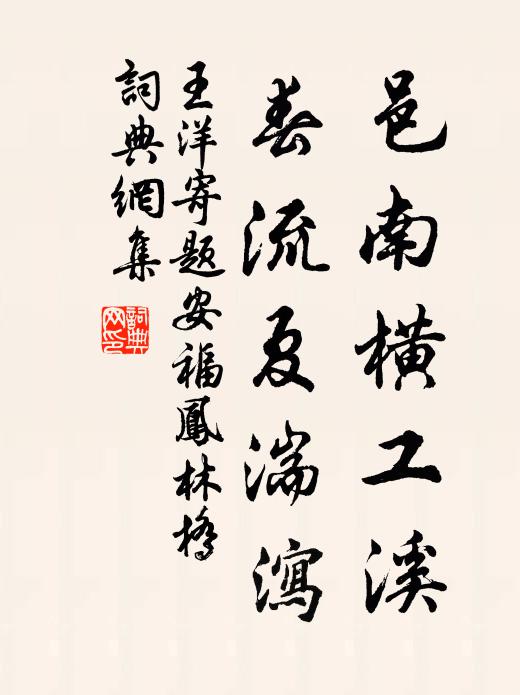 邑南橫工溪
春流夏湍瀉
王洋寄題安福鳳林橋
詞典網集
詞典
網印